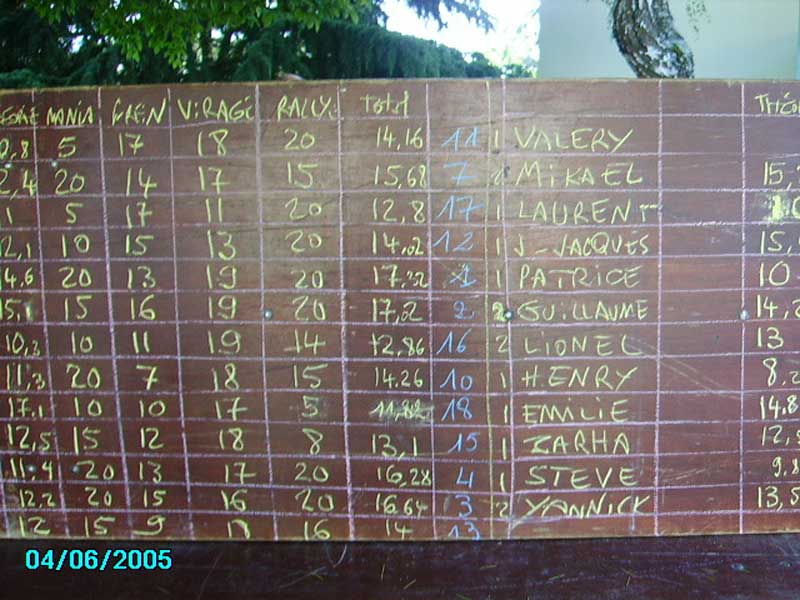 MANIA FREIN VIRAGE RALLY total
0,8 5 17 18 20 14,16 11 1 VALERY
2,4 20 14 17 15 15,68 7 2 MIKAEL 15,
11 5 17 11 20 12,8 17 1 LAURENT
12,1 10 15 13 20 14,02 12 1 J-JACQUES 15,
14.6 20 13 19 20 17,32 1 1 PATRICE 10
15,1 15 16 19 20 17,2 2 2 GUILLAUME 14,2
10,3 10 11 19 14 12,86 16 2 LIONEL 13
11,3 20 7 18 15 14.26 10 1 HENRY 8,2
17,1 10 10 17 5 18 1 EMILIE 14.8
12,5 15 12 18 8 13,1 15 1 ZARHA 12,5
11,4 20 13 17 20 16,28 4 1 STEVE 9,8
12,2 20 15 16 20 16,64 3 2 YANNICK 13,5
12 15 9 16 14 13
04/06/2005